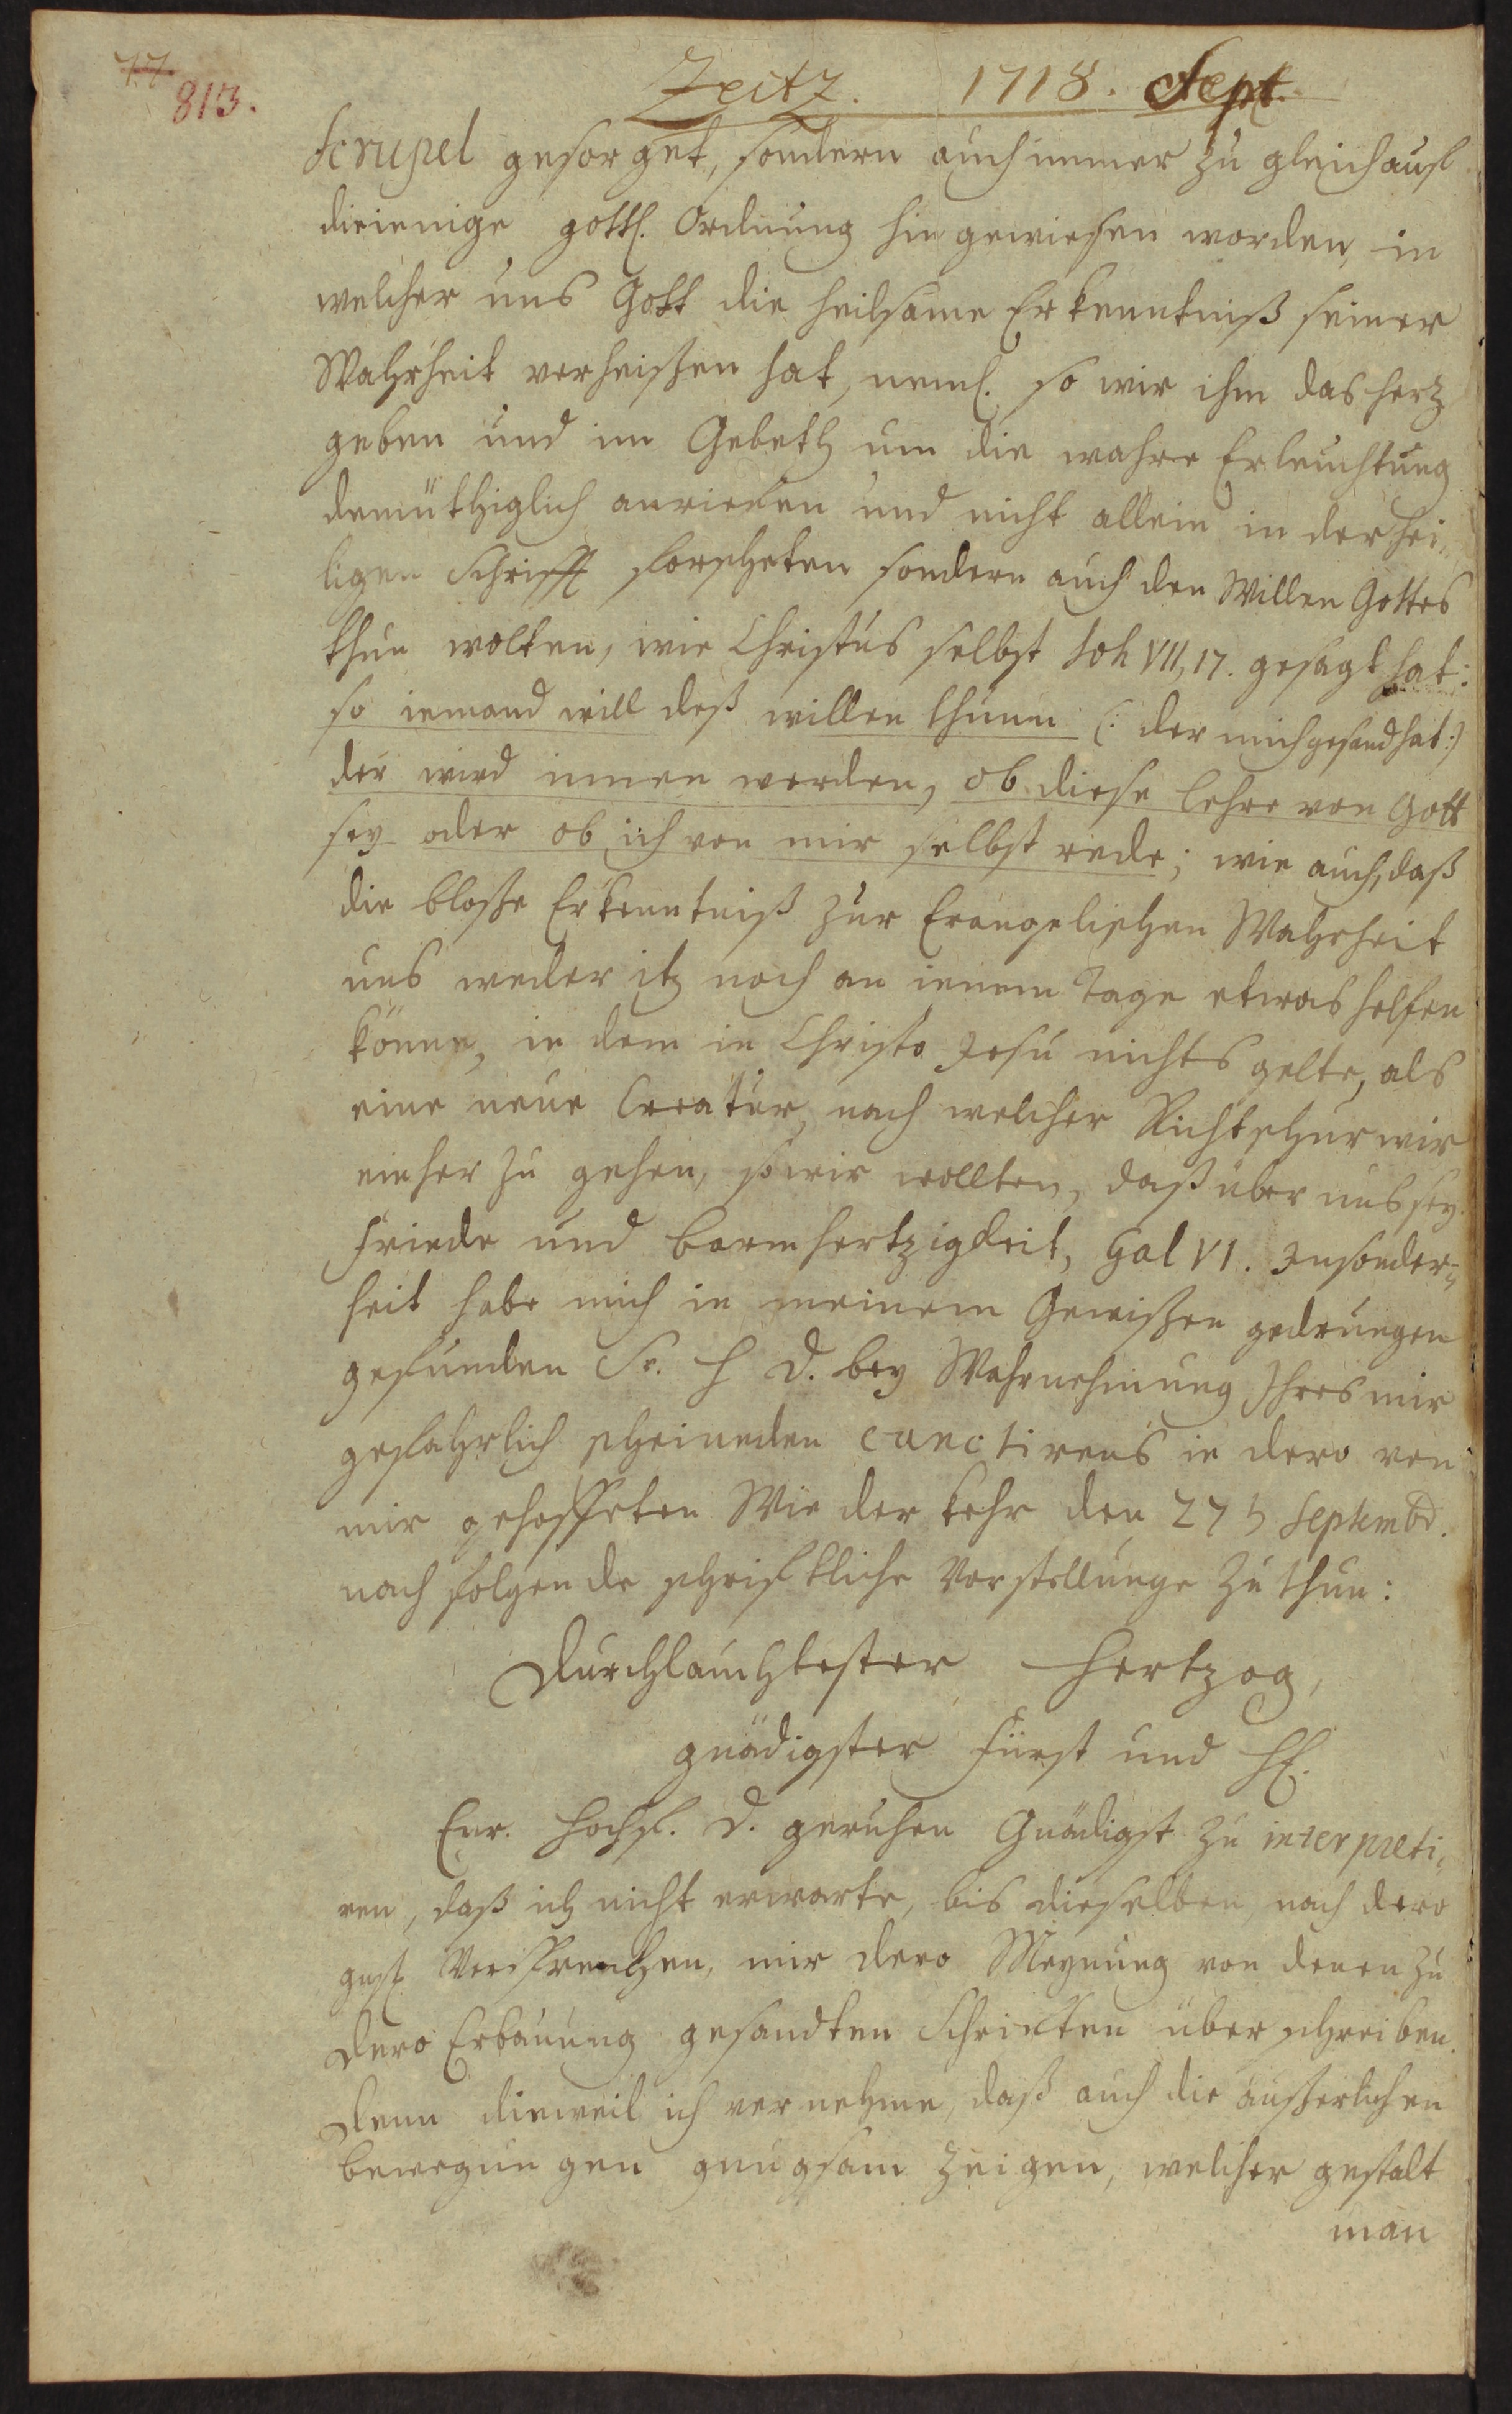 77.
813.
Zeitz. 1718. Sept.
Scrupel gesorget, sondern auch immer zu gleich auf
dieienige göttl. Ordnung hin gewiesen worden, in
welcher uns Gott die heilsame Erkenntniß seiner
Wahrheit verheißen hat, neml. so wir ihm das hertz
geben und im Gebeth um die wahre Erleuchtung
demüthiglich anrieffen und nicht allein in der hei„
ligen Schrifft forscheten sondern auch den Willen Gottes
thun wolten, wie Christus selbst Joh VII, 17. gesagt hat:
so iemand will deß willen thunn (: der mich gesand hat :)
der wird innen werden, ob diese Lehre von Gott
sey oder ob ich von mir selbst rede; wie auch, daß
die bloße Erkenntniß zur Evangelischen Wahrheit
uns weder itz noch an ienem Tage etwas helfen
könne, in dem in Christo Jesu nichts gelte, als
eine neue Creatur, nach welcher Richtschnur wir
einher zu gehen, so wir wollten, daß über uns sey
Friede und barmhertzigkeit, Gal VI. Insonder=
heit habe mich in meinem Gewißen gedrungen
gefunden Sr. H D. bey Wahrnehmung Ihres mir
gefährlich scheineden cunctirens in dero von
mir gehofften Wie der kehr den 27 ♄ Septembr.
nach folgende schrifftliche Vorstellunge zu thun:
Durchlauchtester Hertzog,
gnädigster Fürst und H.
Eur. Hochf. D. geruhen Gnädigst zu interpreti„
ren, daß ich nicht erwarte, bis dieselben, nach dero
gnst. Versprechen, mir dero Meynung von denen zu
dero Erbauung gesandten Schrifften über schreiben.
Denn dieweil ich vernehme, daß auch die äußerlichen
bewegungen gnugsam zeigen, welcher gestalt
man